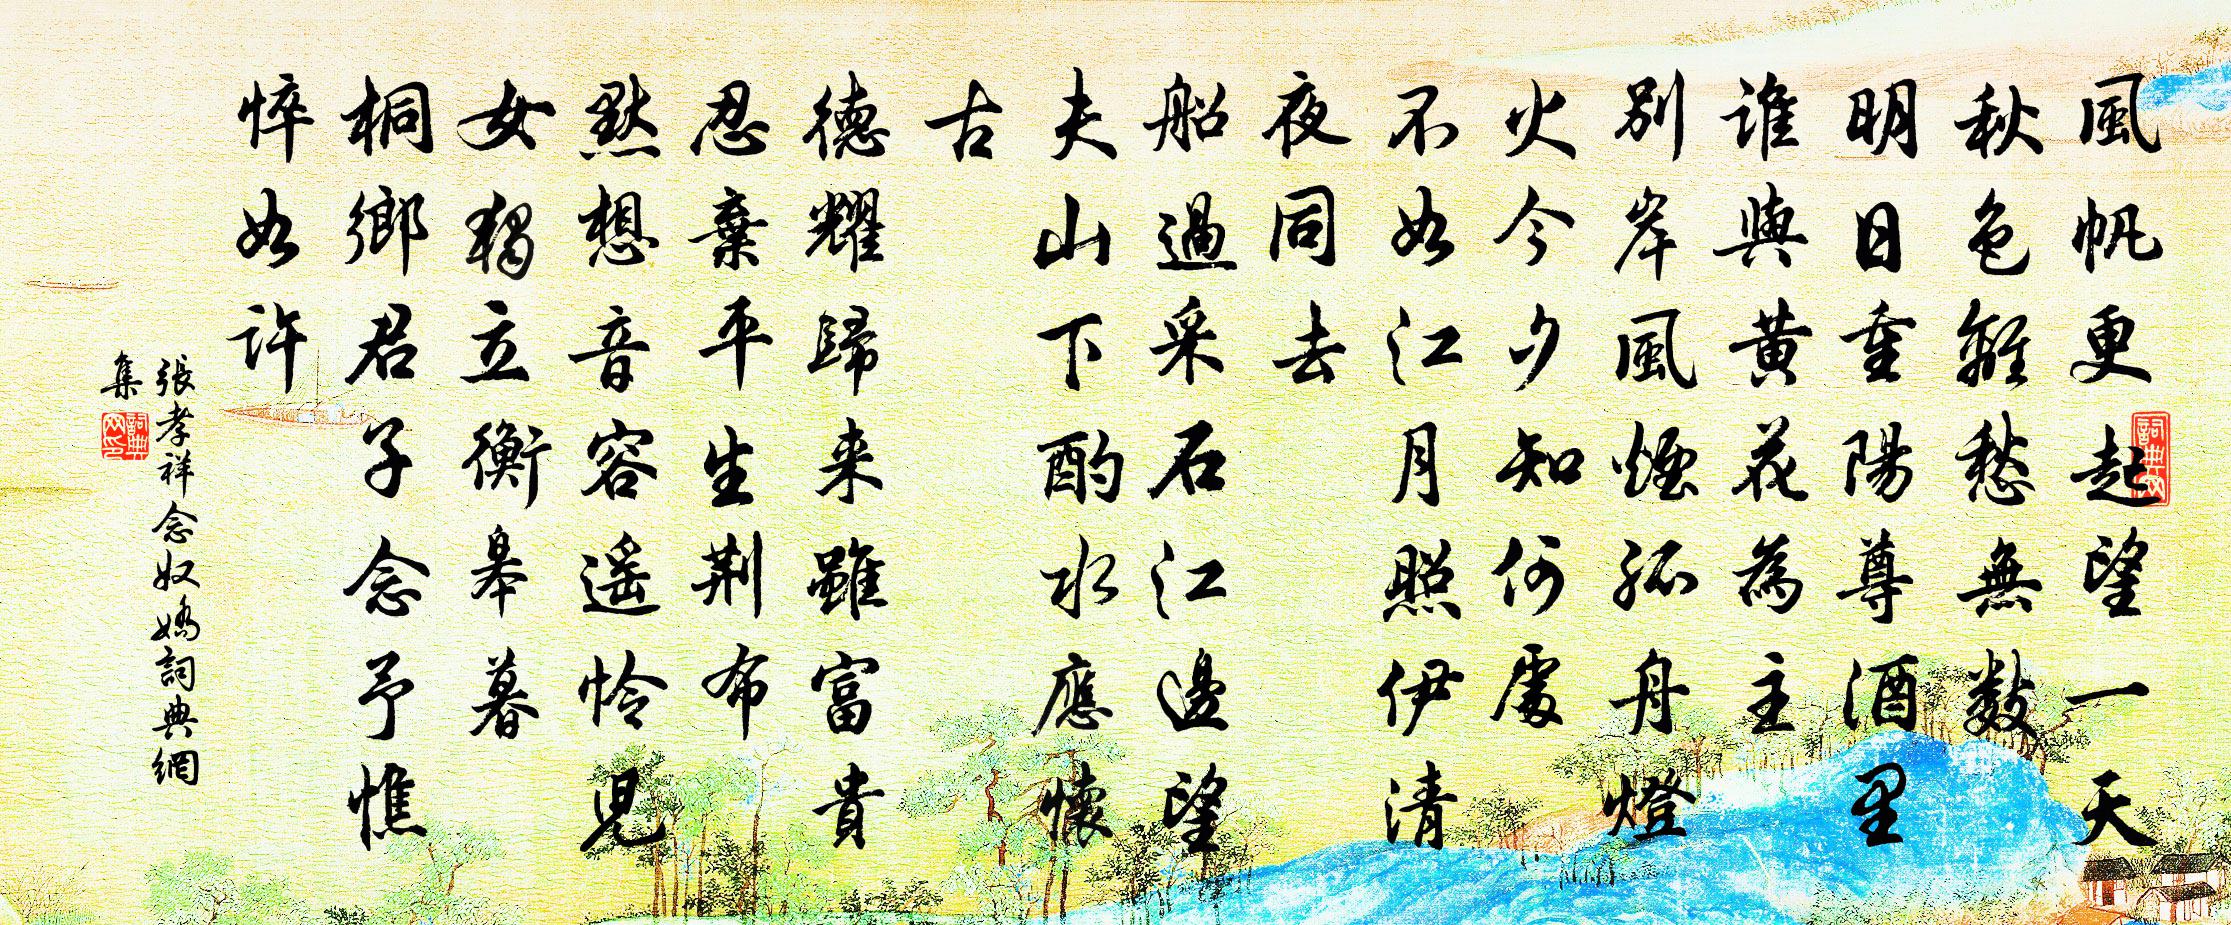 風帆更起望一天
秋色離愁無数
明日重陽尊酒里
誰與黄花為主
别岸風煙孤舟燈
火今夕知何處
不如江月照伊清
夜同去
船過采石江邊望
夫山下酌水應懷
古
德耀歸来雖富貴
忍棄平生荆布
默想音容遥怜児
女獨立衡皋暮
桐鄉君子念予憔
悴如許
張孝祥念奴嬌詞典網
集
詞典网
詞典网印